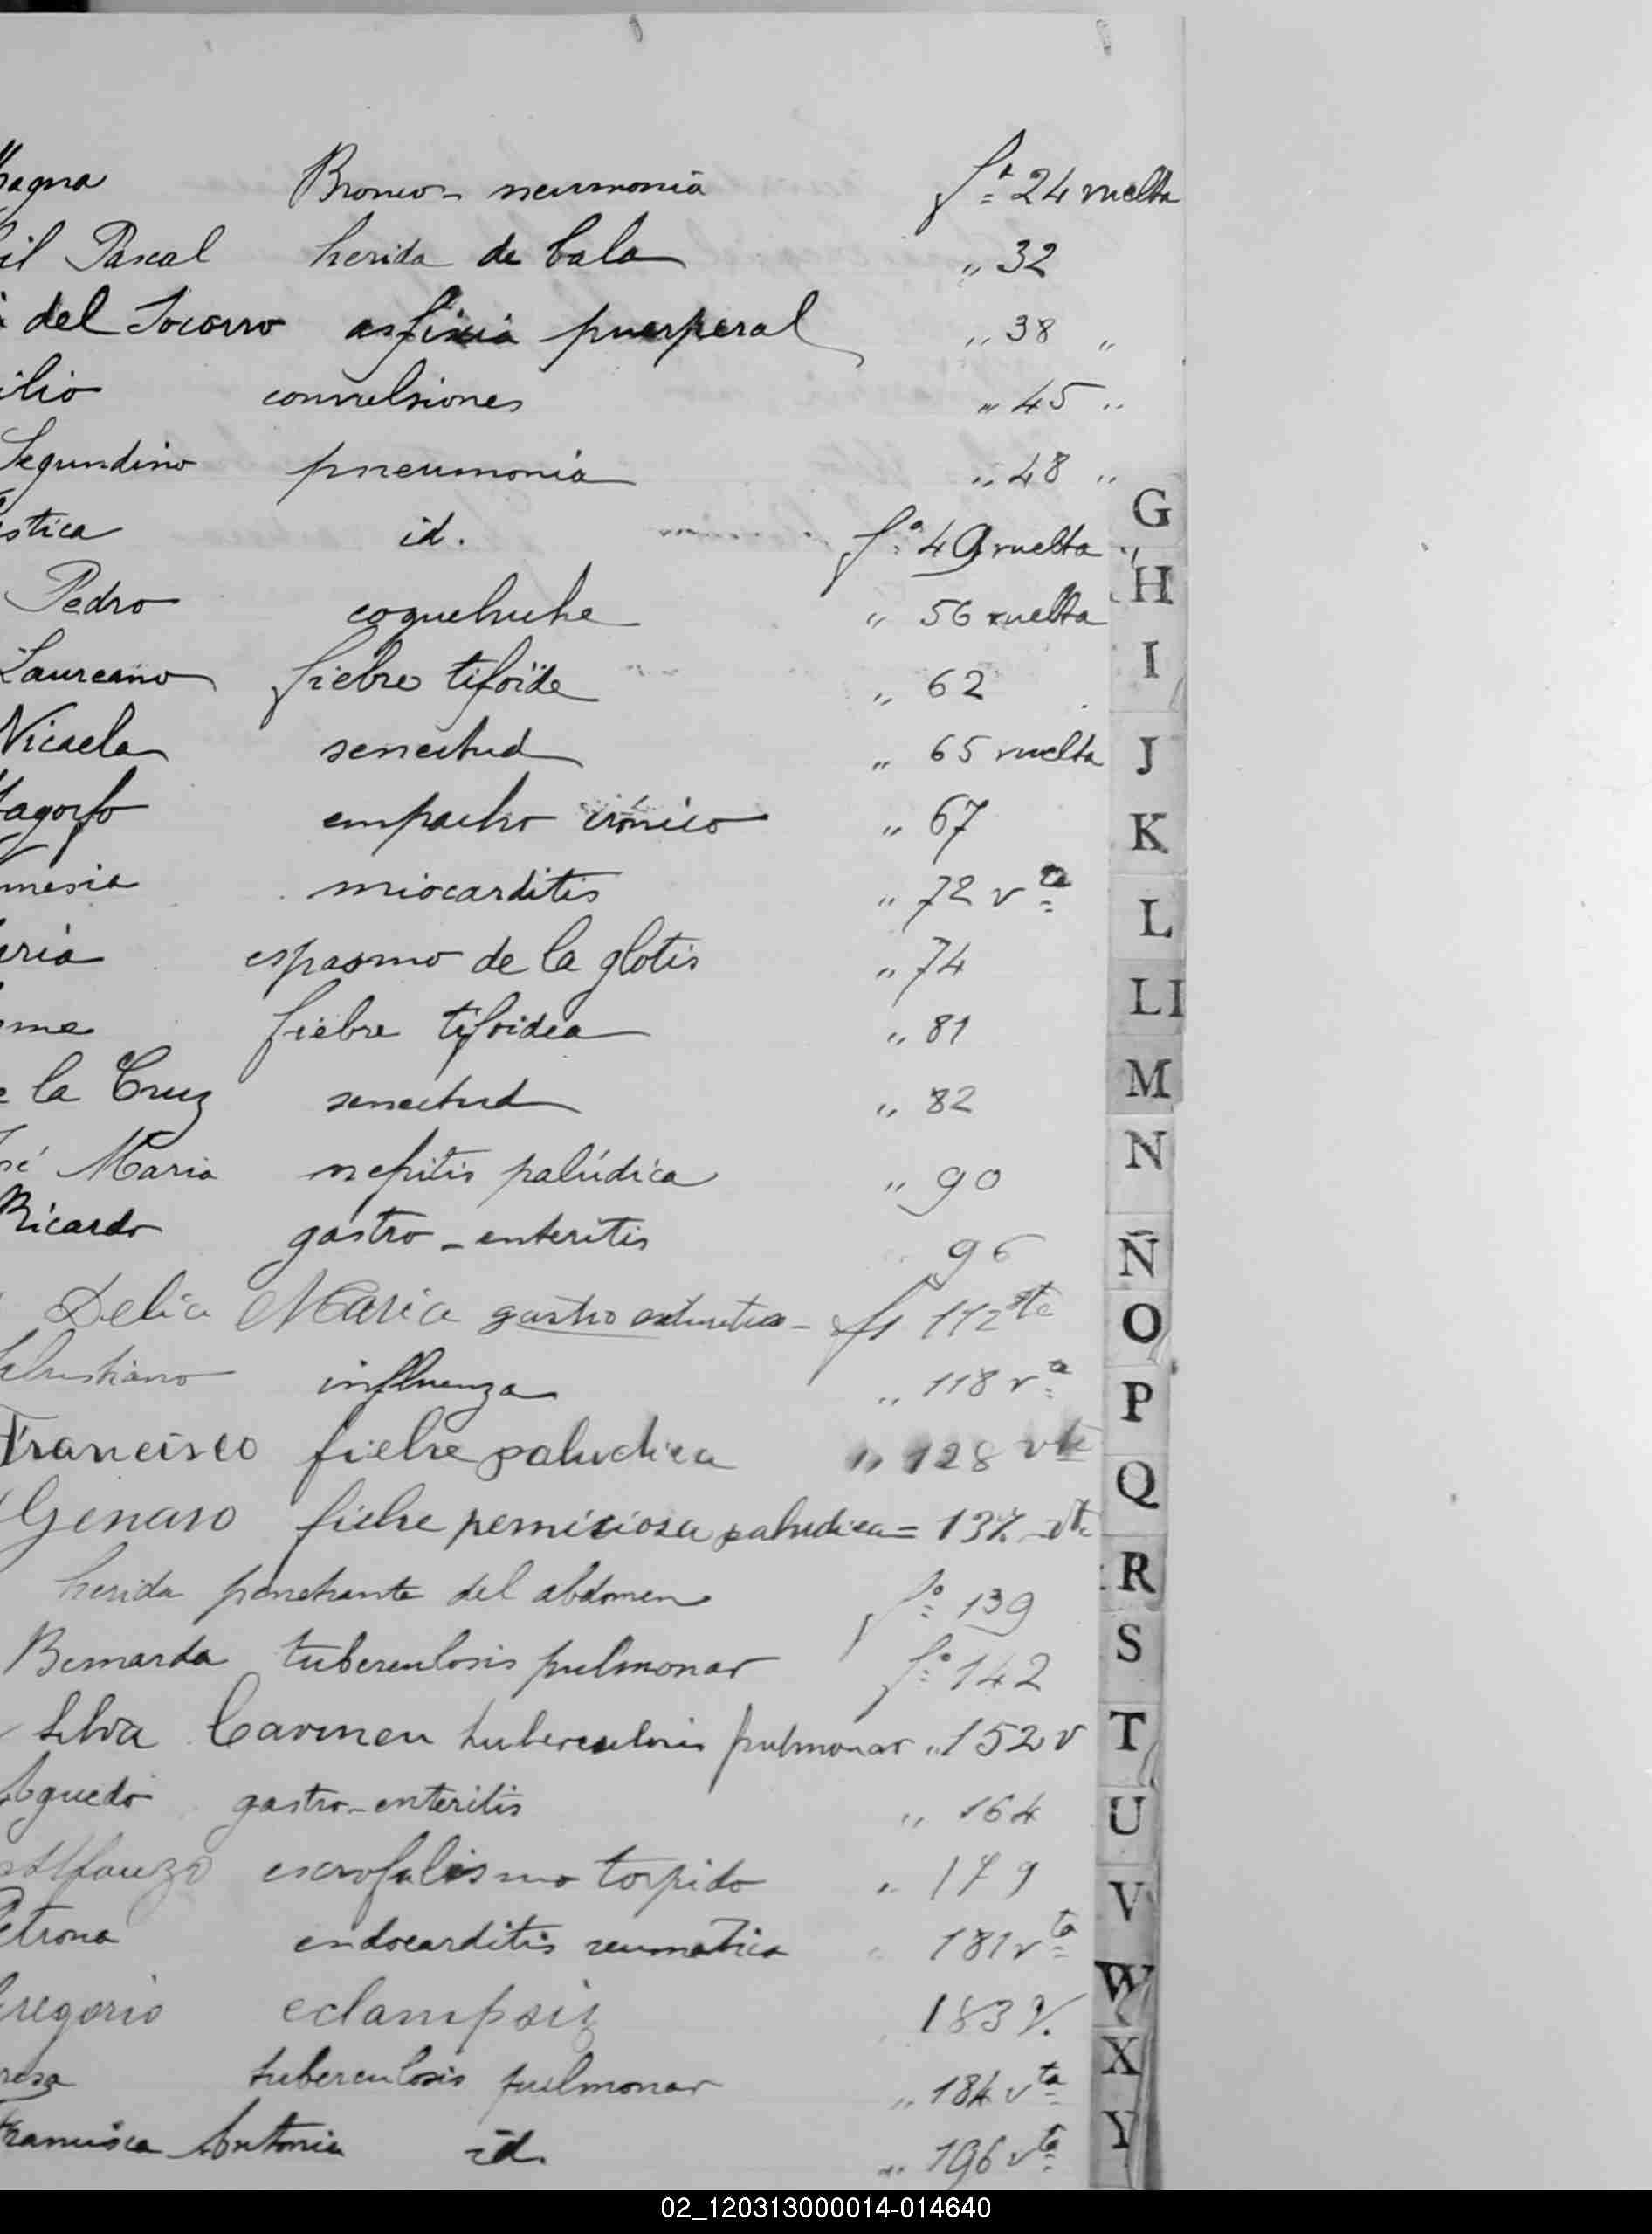 Bronco-neumonia fª 24 vuelta
Pascal herida de bala " 32
del Socorro asfixia puerperal " 38 "
convulsiones " 45 "
Segundino pneumonia " 48 "
id. fº 49 vuelta "
Pedro coqueluche " 56 vuelta
Laureano fiebre tifoide " 62
senectud " 65 vuelta
empacho crónico " 67
miocarditis " 72 vta
espasmo de la glotis " 74
fiebre tifoidea " 81
la Cruz senectud " 82
Maria nefritis palúdica " 90
Ricardo gastro-enteritis 96
Delia Maria gastro enteritis - fs 112 vta
influenza " 118 vª
Francisco fiebre paludica " 128 vta
Genaro fiebre perniciosa paludica = 137 vta
herida penetrante del abdomen fº 139
Bernarda tuberculosis pulmonar fº 142
Silva Carmen tuberculosis pulmonar " 152 v
Aguedo gastro-enteritis " 164
escrofulismo torpido " 179
Petrona endocarditis reumatica 181 vta
Gregorio eclampsia 183 v.
tuberculosis pulmonar " 184 vta
Francisca Antonia id. " 196 vta
G
H
I
J
K
L
LI
M
N
Ñ
O
P
Q
R
S
T
U
V
W
X
Y
02_120313000014-014640